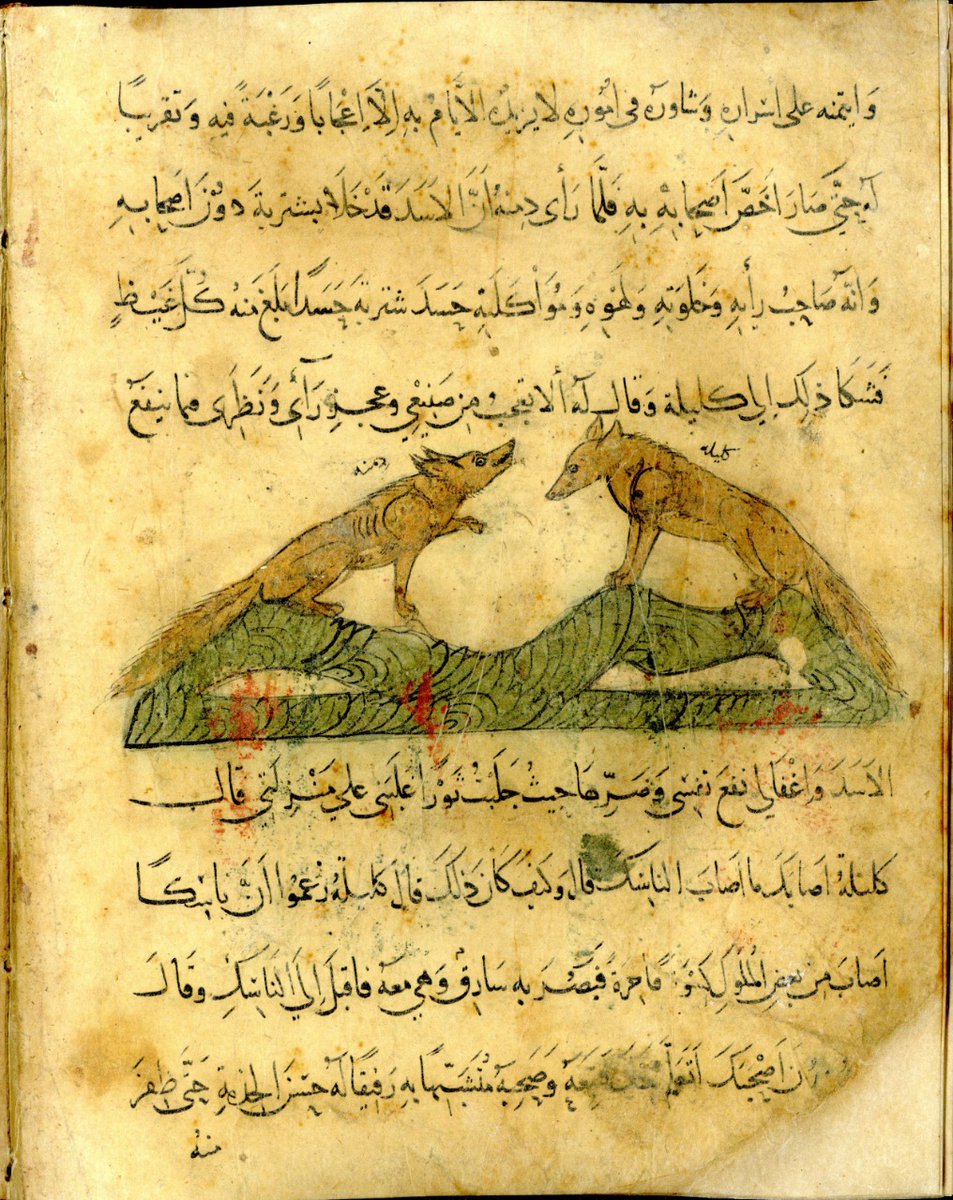 وَايتمنه على اسْرارِهِ وَشاوره فى امُورِهِ لا يزيدُه الأيامُ بهِ اِلّا اِعْجَابًا وَرَغْبَةً فيهِ وَتقريبًا
له حتَّى صَارَ اخَصَّ اَصحابِهِ بِهِ فَلَّما رَأى دمنهُ اَنَّ الاسَدَ قَدْ خَلَا بشتربة دوُنَ اَصحابِهِ
وَانّه صَاحِبُ رأيهِ وَخَلوَتِهِ وَلهْوِهِ وَمُواْكلَتِهِ حَسَدَ شتربة حَسَدًا بَلغَ منهُ كُلّ غَيْظٍ
فَشَكَا ذلِكَ اِلى كليلة وَقالَ له ألا تعجبُ مِن صَنيعْي وعجزِ رَأى وَنَظَرى فما ينفعُ
دمنه
كليله
الاَسَدَ وَاِغْفَالى نفعَ نفسِى وَضرِّها حيثُ جَلَبْتُ ثَورًا غلبَنى على مَنْزِلتى قالَ
كليلةُ اصابَكَ ما اَصَابَ الناسِكَ قالَ وَكيفَ كانَ ذلكَ قالَ كليلةُ زعمُوا اَنَّ ناسِكًا
اَصَابَ مِن بعضِ الملُوكِ كسْوَةً فاخرةً فبَصُرَ بهِ سَارِقٌ وَهى معَه فاقبَلَ اِلى الناسِكِ وقالَ
اَنْ اَصْحبَكَ اَتعلّم وَصَحِبهُ مُتشَبّهًا بهِ رَفيقًا لَه حسَنَ الخدمةِ حتَّى ظفِرَ
منهُ